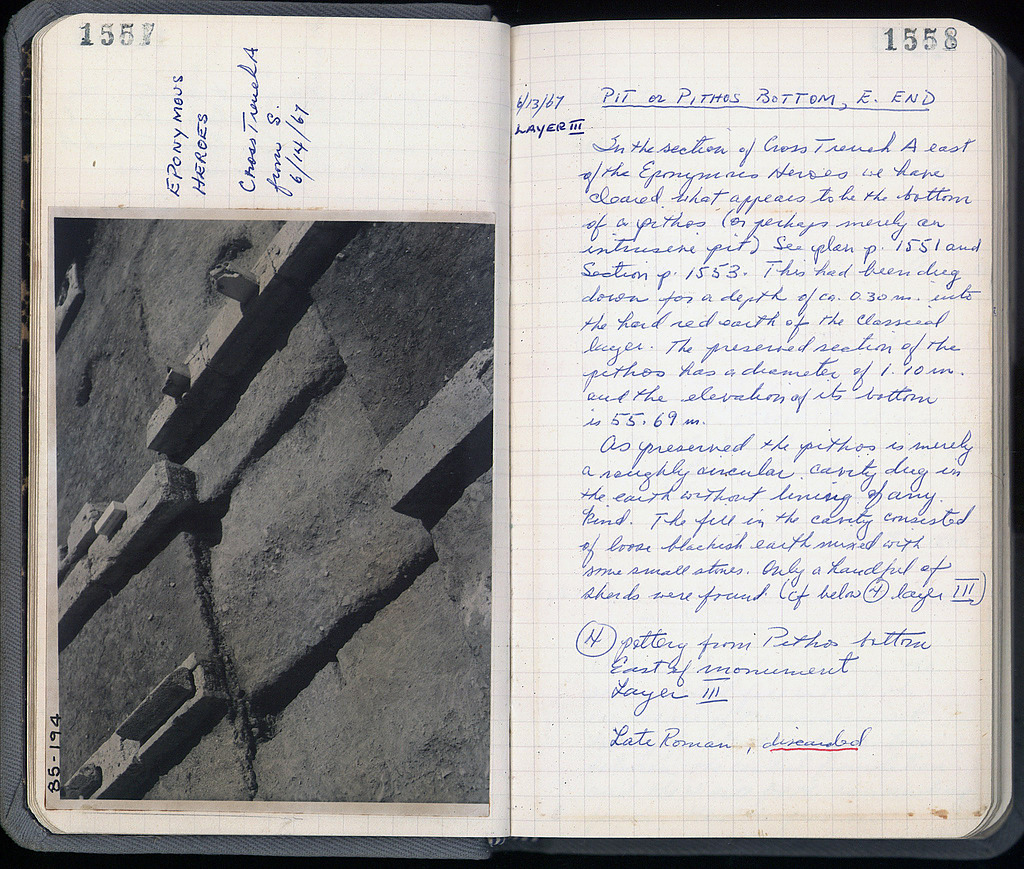 1557
EPONYMOUS
HEROES
Cross Trench A
from S.
6/14/67
85-194
1558
6/13/67
LAYER III
PIT or PITHOS BOTTOM, E. END
In the section of Cross Trench A east
of the Eponymous Heroes we have
cleared what appears to be the bottom
of a pithos (or perhaps merely an
intrusive pit) See plan p. 1551 and
Section p. 1553. This had been dug
down for a depth of ca. 0.30 m. into
the hard red earth of the classical
layer. The preserved section of the
pithos has a diameter of 1.10 m.
and the elevation of its bottom
is 55.69 m.
As preserved the pithos is merely
a roughly circular cavity dug in
the earth without lining of any
kind. The fill in the cavity consisted
of loose blackish earth mixed with
some small stones. Only a handful of
sherds were found (cf below 4 layer III)
4 pottery from Pithos bottom
East of monument
Layer III
Late Roman, discarded